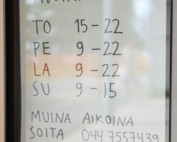 TO 15-22
PE 9-22
LA 9-22
SU 9-15
MUINA AIKOINA
SOITA 044 7557439